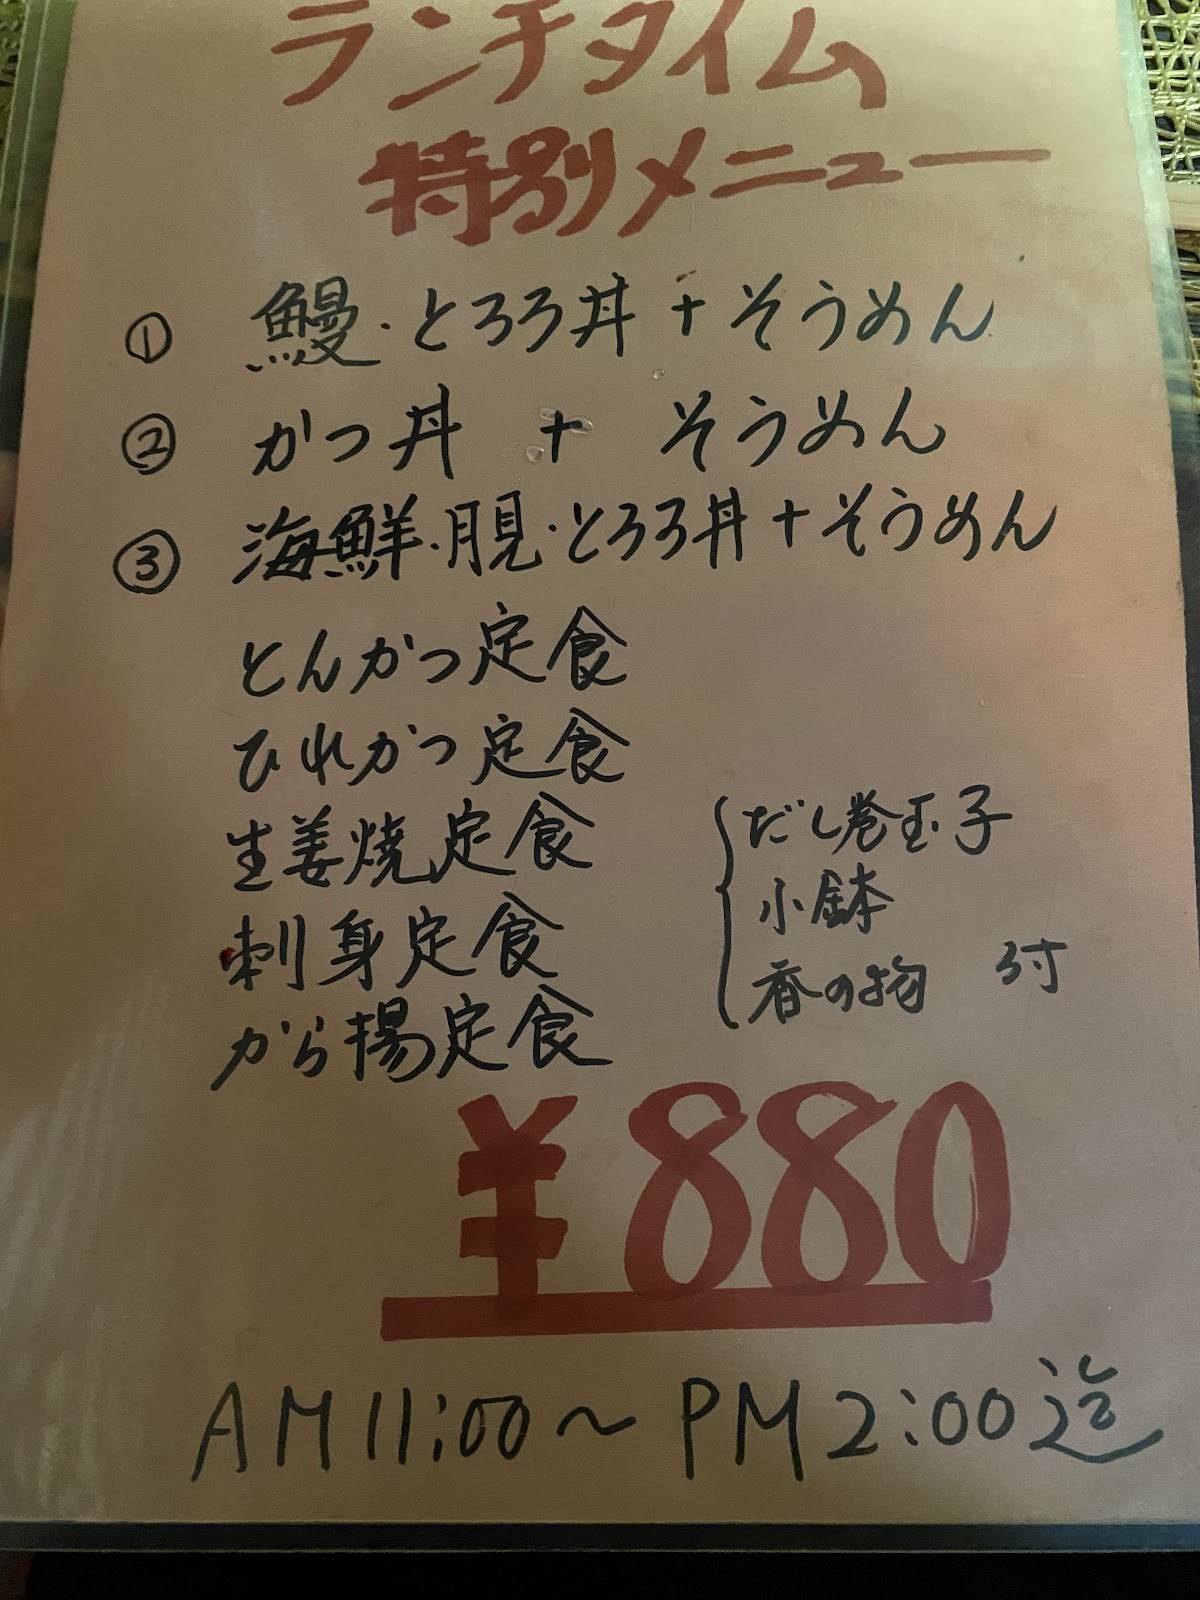 ランチタイム
特別メニュー
① 鰻・とろろ丼+そうめん
② かつ丼 + そうめん
③ 海鮮・月見・とろろ丼+そうめん
とんかつ定食
ひれかつ定食
生姜焼定食
刺身定食
から揚定食
だし巻玉子
小鉢
香の物 付
¥880
AM11:00～PM2:00迄